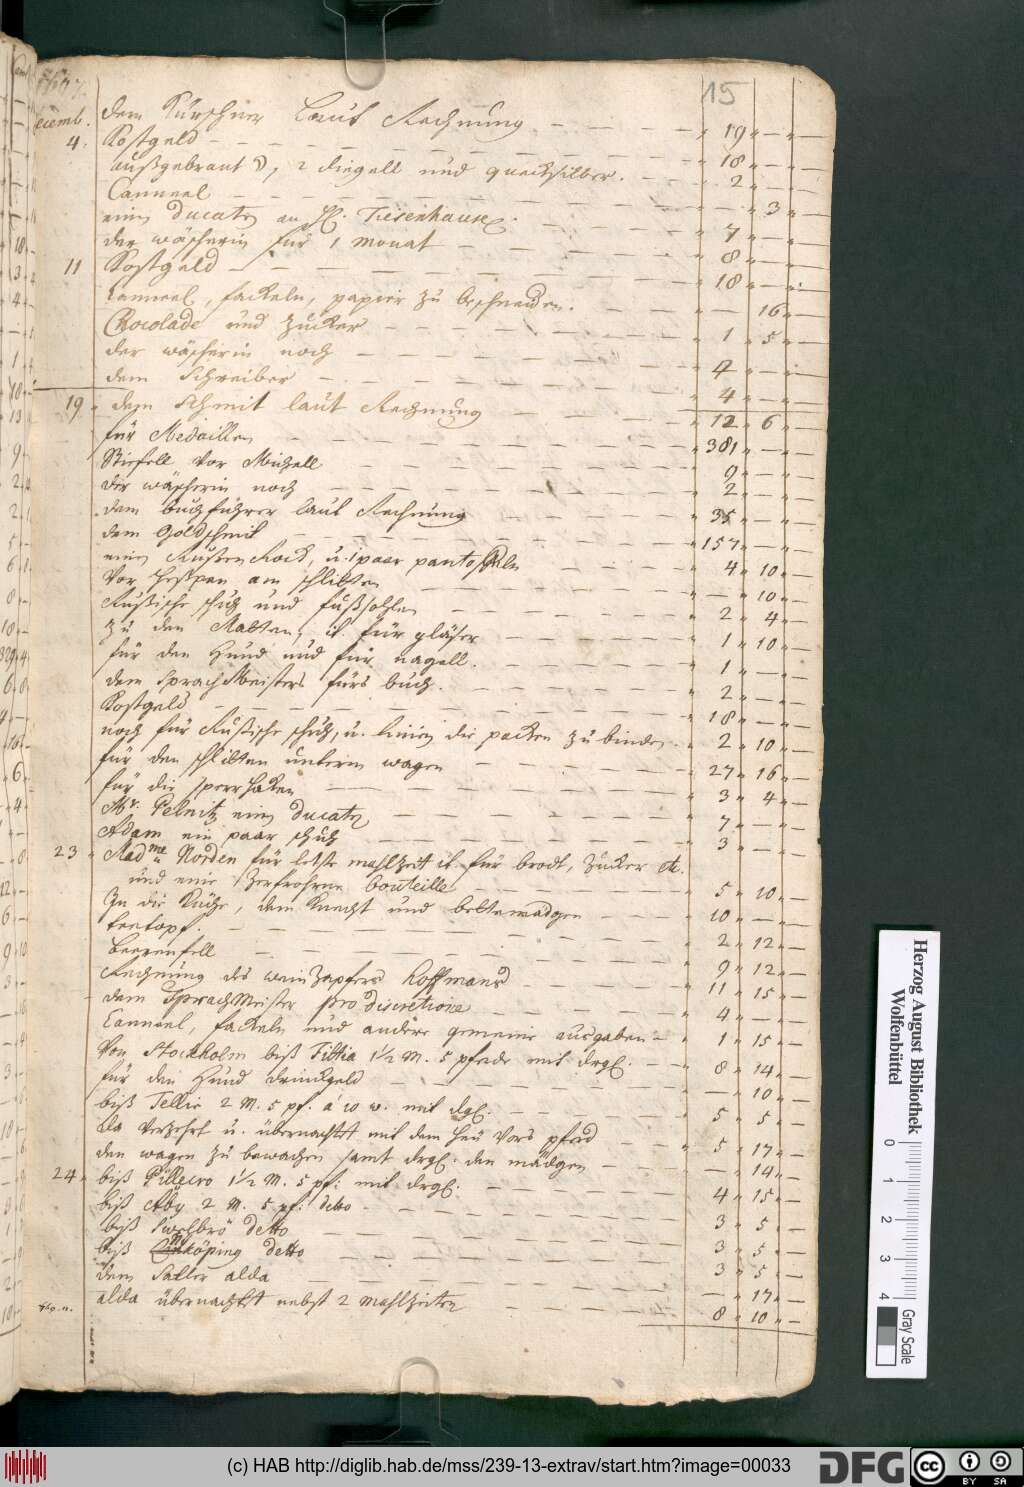 15
Decemb.
dem Kürschner Laut Rechnung — 19 — —
4. Kostgeld — 18 — —
außgebrant, 2 diegell und quecksilber. — 2 — —
Canneel — — 3 —
einen ducaten an H. Tiesenhausen. — 7 — —
der wäscherin für 1 Monat — 8 — —
11 Kostgeld — 18 — —
Canneel, fackeln, papier zu beschneiden. — — 16 —
Chocolade und Zucker — 1 5 —
der wäscherin noch — 4 — —
dem Schreiber — 4 — —
19 dem Schmit laut Rechnung — 12 6 —
für Medaillen — 381 — —
Stiefell vor Michell — 9 — —
der wäscherin noch — 2 — —
dem buchführer laut Rechnung — 35 — —
dem Goldschmit — 157 — —
einen Rußen Rock, u. 1 paar pantoffeln — 4 10 —
Vor am schlitten — — 10 —
Rußische schuh und fußsohlen — 2 4 —
zu den Matten, it. für gläser — 1 10 —
für den Hund und für nagell. — 1 — —
dem SprachMeisters fürs buch. — 2 — —
Kostgeld — 18 — —
noch für Rußische schuh, u. linien die packen zu binden. — 2 10 —
für den schlitten unterm wagen — 27 16 —
für die sperrhaken — 3 4 —
Mr. Pelnitz einen ducaten — 7 — —
Adam ein paar schuh — 3 — —
23 Madme Norden für letste mahlzeit it. für brodt, Zucker etc.
und eine Zerfrohrne bouteille — 5 10 —
In die Küche, dem Knecht und bettemädgen — 10 — —
teetopf. — 2 12 —
beerenfell — 9 12 —
Rechnung des weinZapfers Hoffmans — 11 15 —
dem SprachMeister pro discretione — 4 — —
Canneel, fackeln und andere gemeine ausgaben — 1 15 —
Von Stockholm biß Fittia 1½ M. 5 pferde mit drgl. — 8 14 —
für den Hund drinckgeld — — 10 —
biß Tellie 2 M. 5 pf. à 10 w. mit dgl. — 5 5 —
da verzehrt u. übernachtet mit dem heu vors pferd — 5 17 —
den wagen zu bewachen samt drgl. den mädgen — — 14 —
24 biß Pillecro 1½ M. 5 pf: mit drgl: — 4 15 —
biß Aby 2 M. 5 pf: detto — 3 5 —
biß Swelbrö detto — 3 5 —
biß köping detto — 3 5 —
dem Satler alda — — 17 —
alda übernachtet nebst 2 Mahlzeiten — 8 10 —
Herzog August Bibliothek
Wolfenbüttel
0 1 2 3 4
Gray Scale
(c) HAB http://diglib.hab.de/mss/239-13-extrav/start.htm?image=00033
DFG
cc BY SA